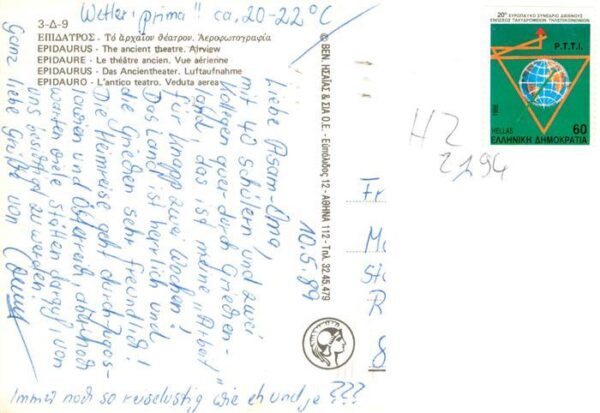 Wetter „prima" ca. 20-22°C
3-Δ-9
ΕΠΙΔΑΤΡΟΣ - Τὸ ἀρχαῖον θέατρον. Ἀεροφωτογραφία
EPIDAURUS - The ancient theatre. Airview
EPIDAURE - Le théâtre ancien. Vue aérienne
EPIDAURUS - Das Ancientheater. Luftaufnahme
EPIDAURO - L'antico teatro. Veduta aerea
10.5.89
Liebe Asam-Oma,
mit 40 Schülern und zwei
Kollegen quer durch Griechen-
land, das ist meine „Arbeit"
für knapp zwei Wochen!
Das Land ist herrlich und
die Griechen sehr freundlich!
Die Heimreise geht durch Jugos-
lawien und Österreich, obwohl
warten viele Stätten darauf, von
uns besichtigt zu werden!
Ganz liebe Grüße von
Immer noch so reiselustig wie eh und je ???
© ΒΕΝ. ΗΣΑΪΑΣ & ΣΙΑ Ο.Ε. - Εὐπόλιδος 12 - ΑΘΗΝΑ 112 - Τηλ. 32.45.479
20° ΕΥΡΩΠΑΪΚΟ ΣΥΝΕΔΡΙΟ ΔΙΕΘΝΟΥΣ
ΕΝΩΣΕΩΣ ΤΑΧΥΔΡΟΜΙΚΩΝ, ΤΗΛΕΠΙΚΟΙΝΩΝΙΩΝ
P.T.T.I.
1988
HELLAS 60
ΕΛΛΗΝΙΚΗ ΔΗΜΟΚΡΑΤΙΑ
HZ
2194
Fr
Ma
Sto
R
8